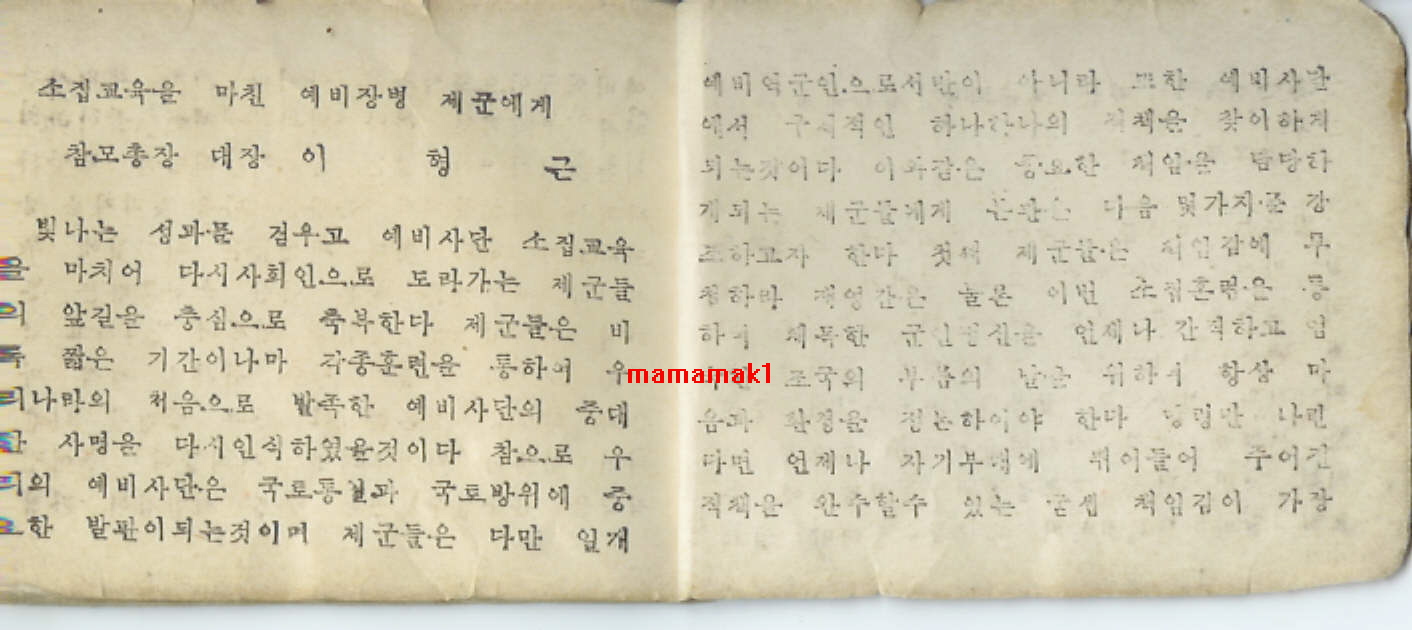 소집교육을 마친 예비장병 제군에게
참모총장 대장 이 형 근
빛나는 성과를 걷우고 예비사단 소집교육
을 마치어 다시사회인으로 도라가는 제군들
의 앞길을 충심으로 축복한다 제군들은 비
록 짧은 기간이나마 각종훈련을 통하여 우
리나라의 처음으로 발족한 예비사단의 중대
한 사명을 다시인식하였을것이다 참으로 우
리의 예비사단은 국토통일과 국토방위에 중
요한 발판이되는것이며 제군들은 다만 일개
예비역군인으로서만이 아니라 또한 예비사단
에서 구체적인 하나하나의 직책을 찾이하게
되는것이다 이와같은 중요한 책임을 담당하
게되는 제군들에게 본관은 다음 몇가지를 강
조하고자 한다 첫째 제군들은 책임감에 투
철하라 재영간은 물론 이번 소집훈련을 통
하여 체득한 군인정신을 언제나 간직하고
mamamak1
조국의 부름의 날을 위하여 항상 마
음과 환경을 정돈하여야 한다 명령만 나린
다면 언제나 자기부대에 뛰어들어 주어진
직책을 완수할수 있는 굳센 책임감이 가장